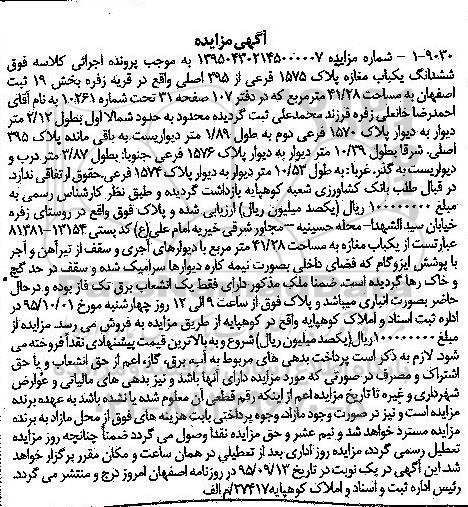 آگهی مزایده
۱-۹۰۳۰ - شماره مزایده ۱۳۹۵۰۴۳۰۲۱۴۵۰۰۰۰۰۷ به موجب پرونده اجرائی کلاسه فوق
ششدانگ یکباب مغازه پلاک ۱۵۷۵ فرعی از ۳۹۵ اصلی واقع در قریه زفره بخش ۱۹ ثبت
اصفهان به مساحت ۴۱/۲۸ مترمربع که در دفتر ۱۰۷ صفحه ۳۱ تحت شماره ۱۰۲۶۱ به نام آقای
احمدرضا خانعلی زفره فرزند محمدعلی ثبت گردیده محدود به حدود شمالا اول بطول ۲/۱۳ متر
دیوار به دیوار پلاک ۱۵۷۰ فرعی دوم به طول ۱/۸۹ متر دیواریست به باقی مانده پلاک ۳۹۵
اصلی. شرقا بطول ۱۰/۳۹ متر دیوار به دیوار پلاک ۱۵۷۶ فرعی .جنوبا: بطول ۳/۸۷ متر درب و
دیواریست به گذر. غربا: به طول ۱۰/۵۳ متر دیوار به دیوار پلاک ۱۵۷۴ فرعی.حقوق ارتفاقی ندارد.
در قبال طلب بانک کشاورزی شعبه کوهپایه بازداشت گردیده و طبق نظر کارشناس رسمی به
مبلغ ۱۰۰۰۰۰۰۰۰ ریال (یکصد میلیون ریال) ارزیابی شده و پلاک فوق واقع در روستای زفره
خیابان سیدالشهدا- محله حسینیه - مجاور شرقی خیریه امام علی(ع) کد پستی ۱۳۱۵۴-۸۱۳۸۱
عبارتست از یکباب مغازه به مساحت ۴۱/۲۸ متر مربع با دیوارهای آجری و سقف از تیرآهن و آجر
با پوشش ایزوگام که فضای داخلی بصورت نیمه کاره دیوارها سرامیک شده و سقف در حد گچ
و خاک رها گردیده است. ضمنا ملک مذکور دارای فقط یک انشعاب برق تک فاز بوده و درحال
حاضر بصورت انباری میباشد و پلاک فوق از ساعت ۹ الی ۱۲ روز چهارشنبه مورخ ۹۵/۱۰/۰۱ در
اداره ثبت اسناد و املاک کوهپایه واقع در کوهپایه از طریق مزایده به فروش می رسد. مزایده از
مبلغ ۱۰۰۰۰۰۰۰۰ریال(یکصد میلیون ریال) شروع و به بالاترین قیمت پیشنهادی نقداً فروخته می
شود. لازم به ذکر است پرداخت بدهی های مربوط به آب، برق، گاز، اعم از حق انشعاب و یا حق
اشتراک و مصرف در صورتی که مورد مزایده دارای آنها باشد و نیز بدهی های مالیاتی و عوارض
شهرداری و غیره تا تاریخ مزایده اعم از اینکه رقم قطعی آن معلوم شده یا نشده باشد به عهده برنده
مزایده است و نیز در صورت وجود مازاد، وجوه پرداختی بابت هزینه های فوق از محل مازاد به برنده
مزایده مسترد خواهد شد و نیم عشر و حق مزایده نقداً وصول می گردد ضمناً چنانچه روز مزایده
تعطیل رسمی گردد، مزایده روز اداری بعد از تعطیلی در همان ساعت و مکان مقرر برگزار خواهد
شد. این آگهی در یک نوبت در تاریخ ۹۵/۰۹/۱۳ در روزنامه اصفهان امروز درج و منتشر می گردد.
رئیس اداره ثبت و اسناد و املاک کوهپایه۲۷۴۱۷/م الف